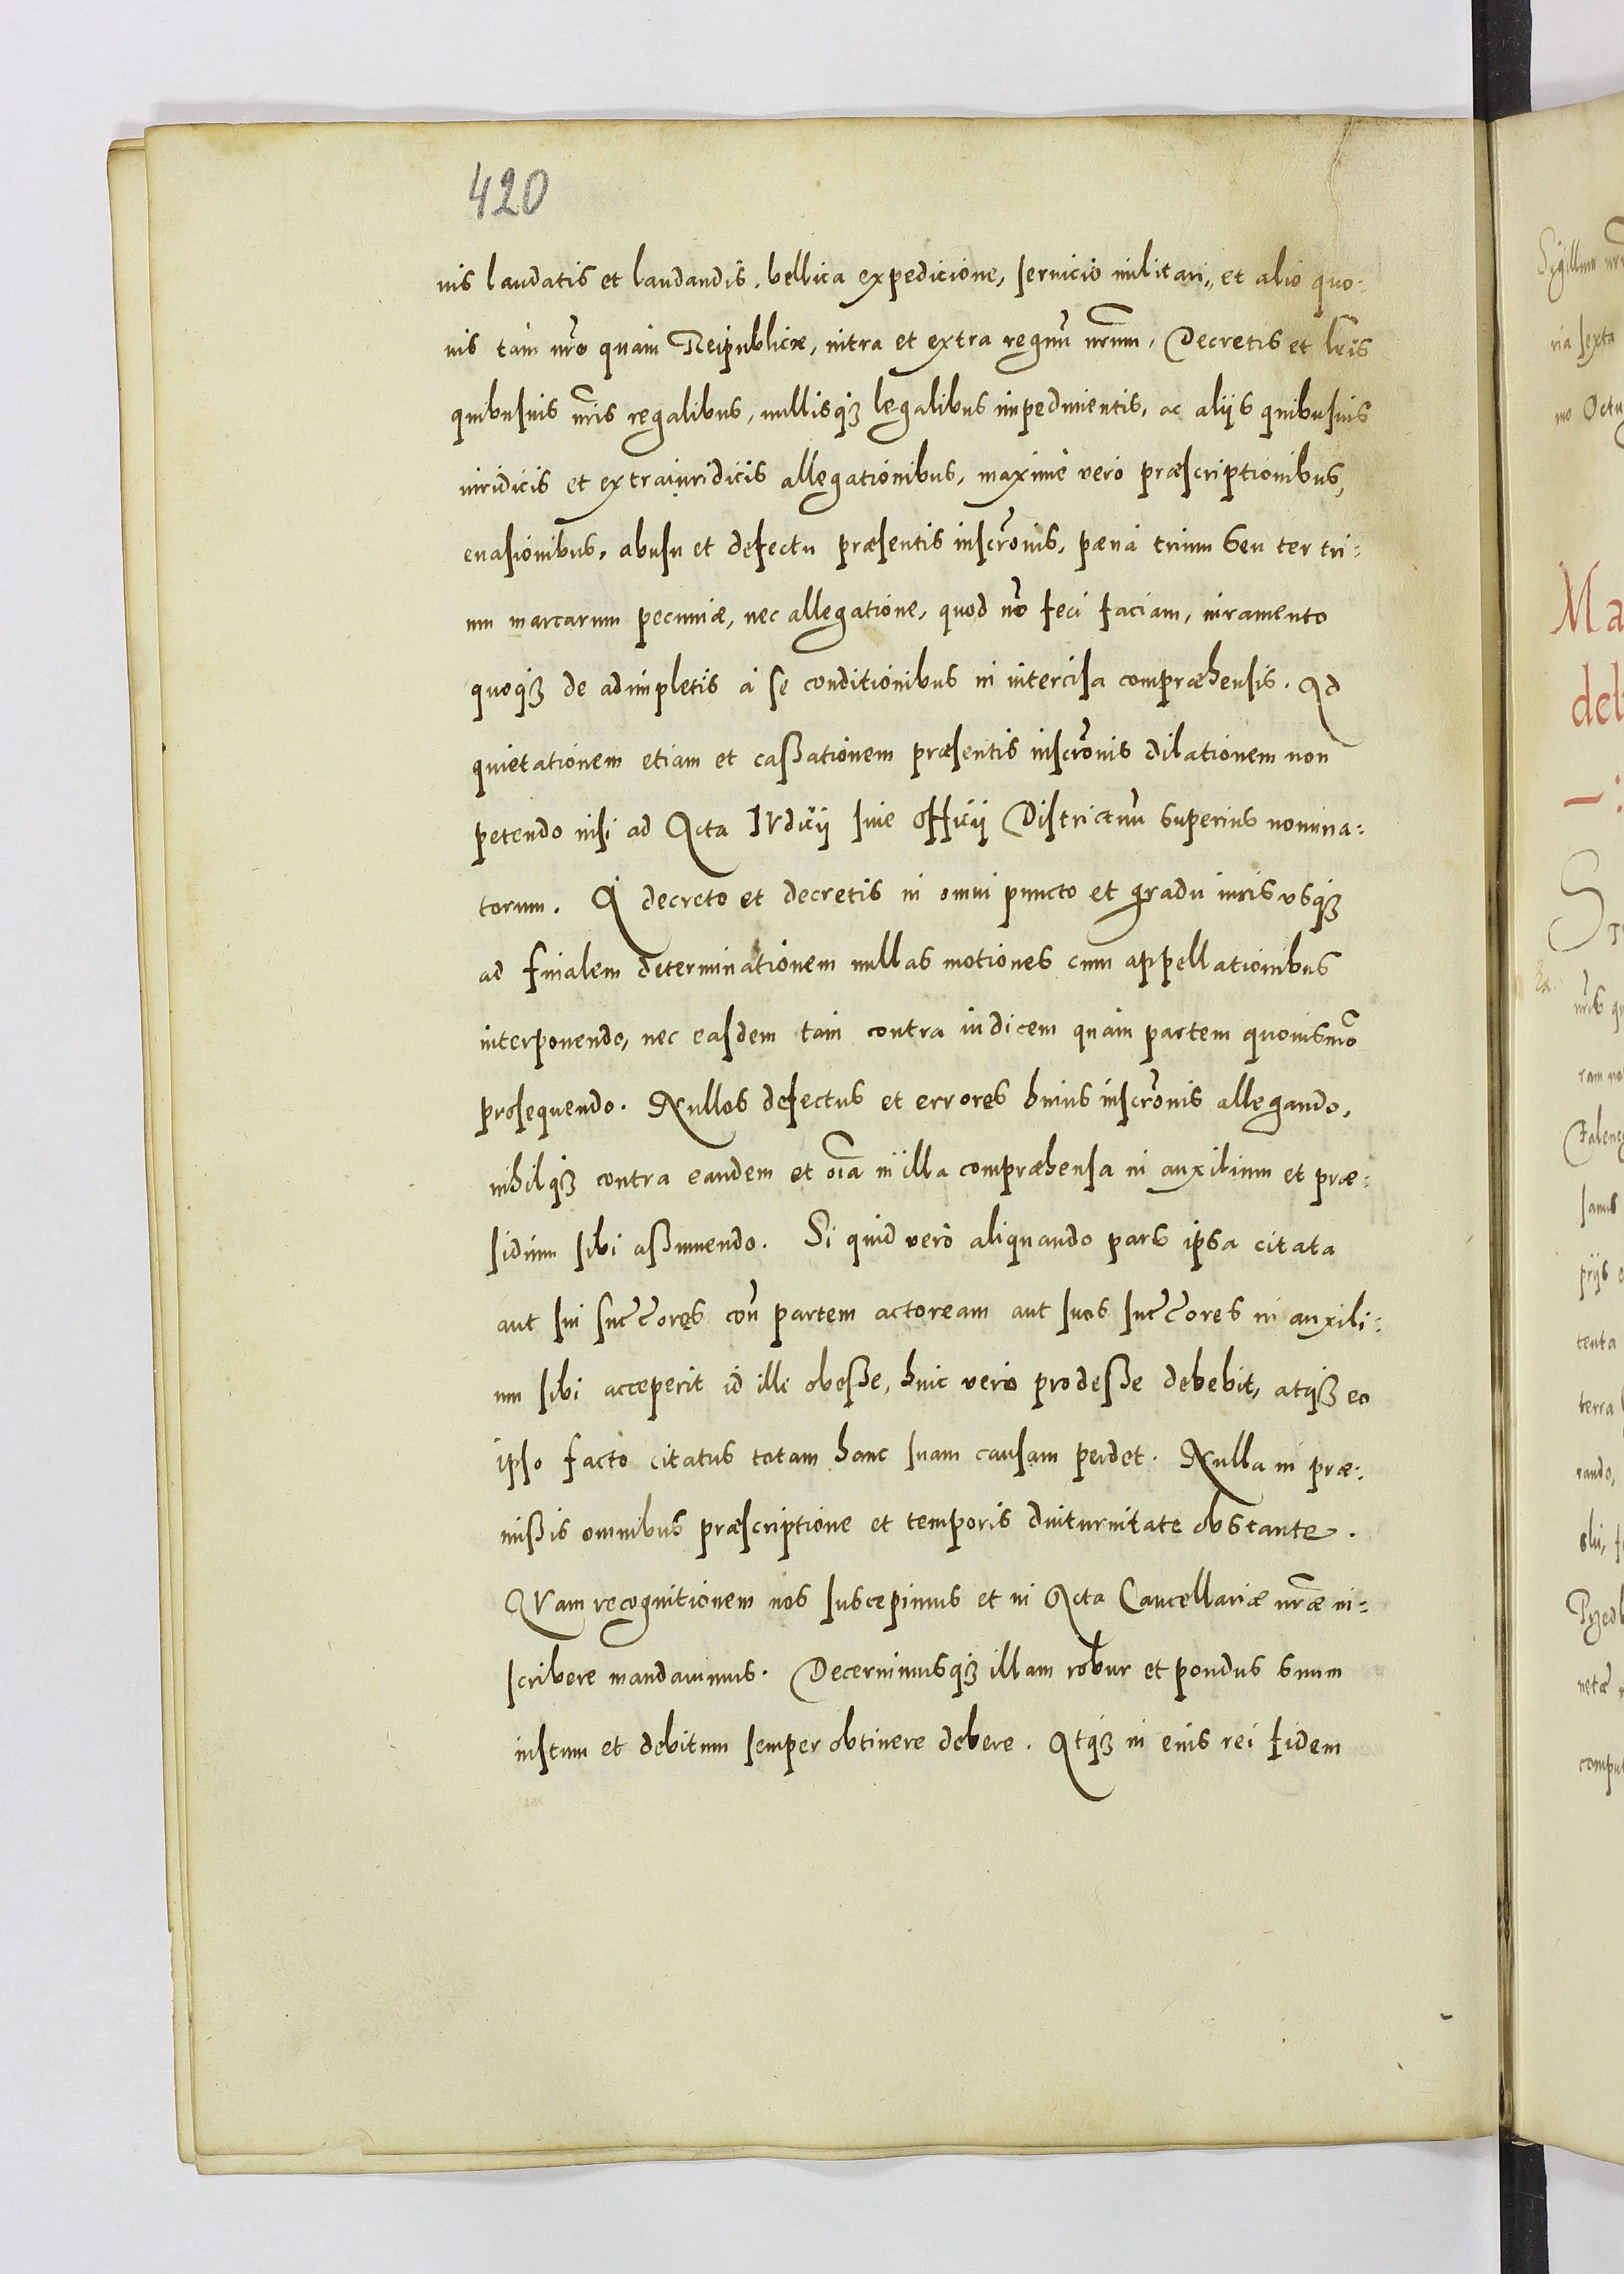 420
uis laudatis et laudandis, bellica expedicione, seruicio militari, et alio quo:
uis tam nro quam Reipublicæ, intra et extra regnū nrum, Decretis et lris
quibusuis nris regalibus, nullisq3 legalibus impedimentis, ac alijs quibusuis
iuridicis et extraiuridicis allegationibus, maxime vero præscriptionibus,
euasionibus, abusu et defectu præsentis inscronis, pæna trium seu ter tri:
um marcarum pecuniæ, nec allegatione, quod nō feci faciam, iuramento
quoq3 de adimpletis à se conditionibus in intercisa compræhensis. Ad
quietationem etiam et caßationem præsentis inscronis dilationem non
petendo nisi ad Acta IVdicij siue officij Districtuū superius nomina:
torum. A decreto et decretis in omni puncto et gradu iuris vsq3
ad finalem determinationem nullas motiones cum appellationibus
interponendo, nec easdem tam contra iudicem quam partem quouismō
prosequendo. Nullos defectus et errores huius inscronis allegando,
nihilq3 contra eandem et oīa in illa compræhensa in auxilium et præ:
sidium sibi aßumendo. Si quid verò aliquando pars ipsa citata
aut sui succores coñ partem actoream aut suos succores in auxili:
um sibi acceperit id illi obeße, huic vero prodeße debebit, atq3 eo
ipso facto citatus totam hanc suam causam perdet. Nulla in præ:
mißis omnibus præscriptione et temporis diuturnitate obstante.
QVam recognitionem nos suscepimus et in Acta Cancellariæ nræ in:
scribere mandauimus. Decernimusq3 illam robur et pondus suum
iustum et debitum semper obtinere debere. Atq3 in eius rei fidem
Sigillum
ria sexta
mo Octu
Ma
deb
nris
ram
sanus
prijs
tenta
terra
rando,
comput